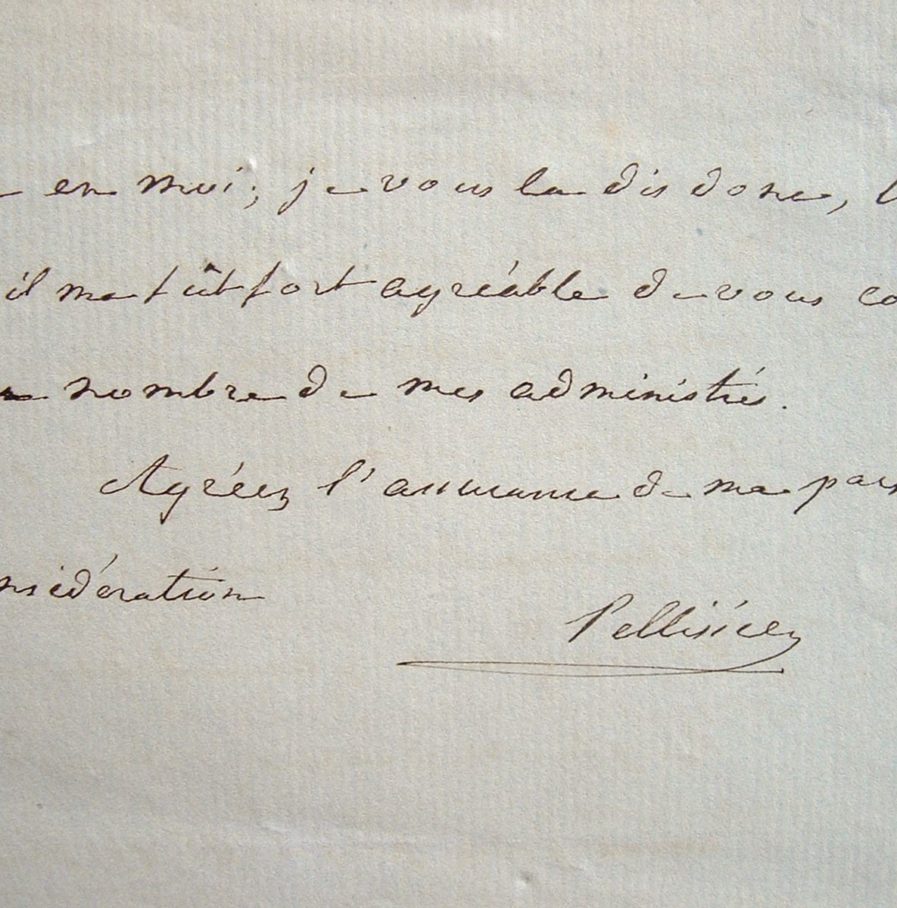 en moi; je vous la dis donc,
il me fût fort agréable de vous
nombre de mes administrés.
Agréez l'assurance de ma
nsidération
Pellissier